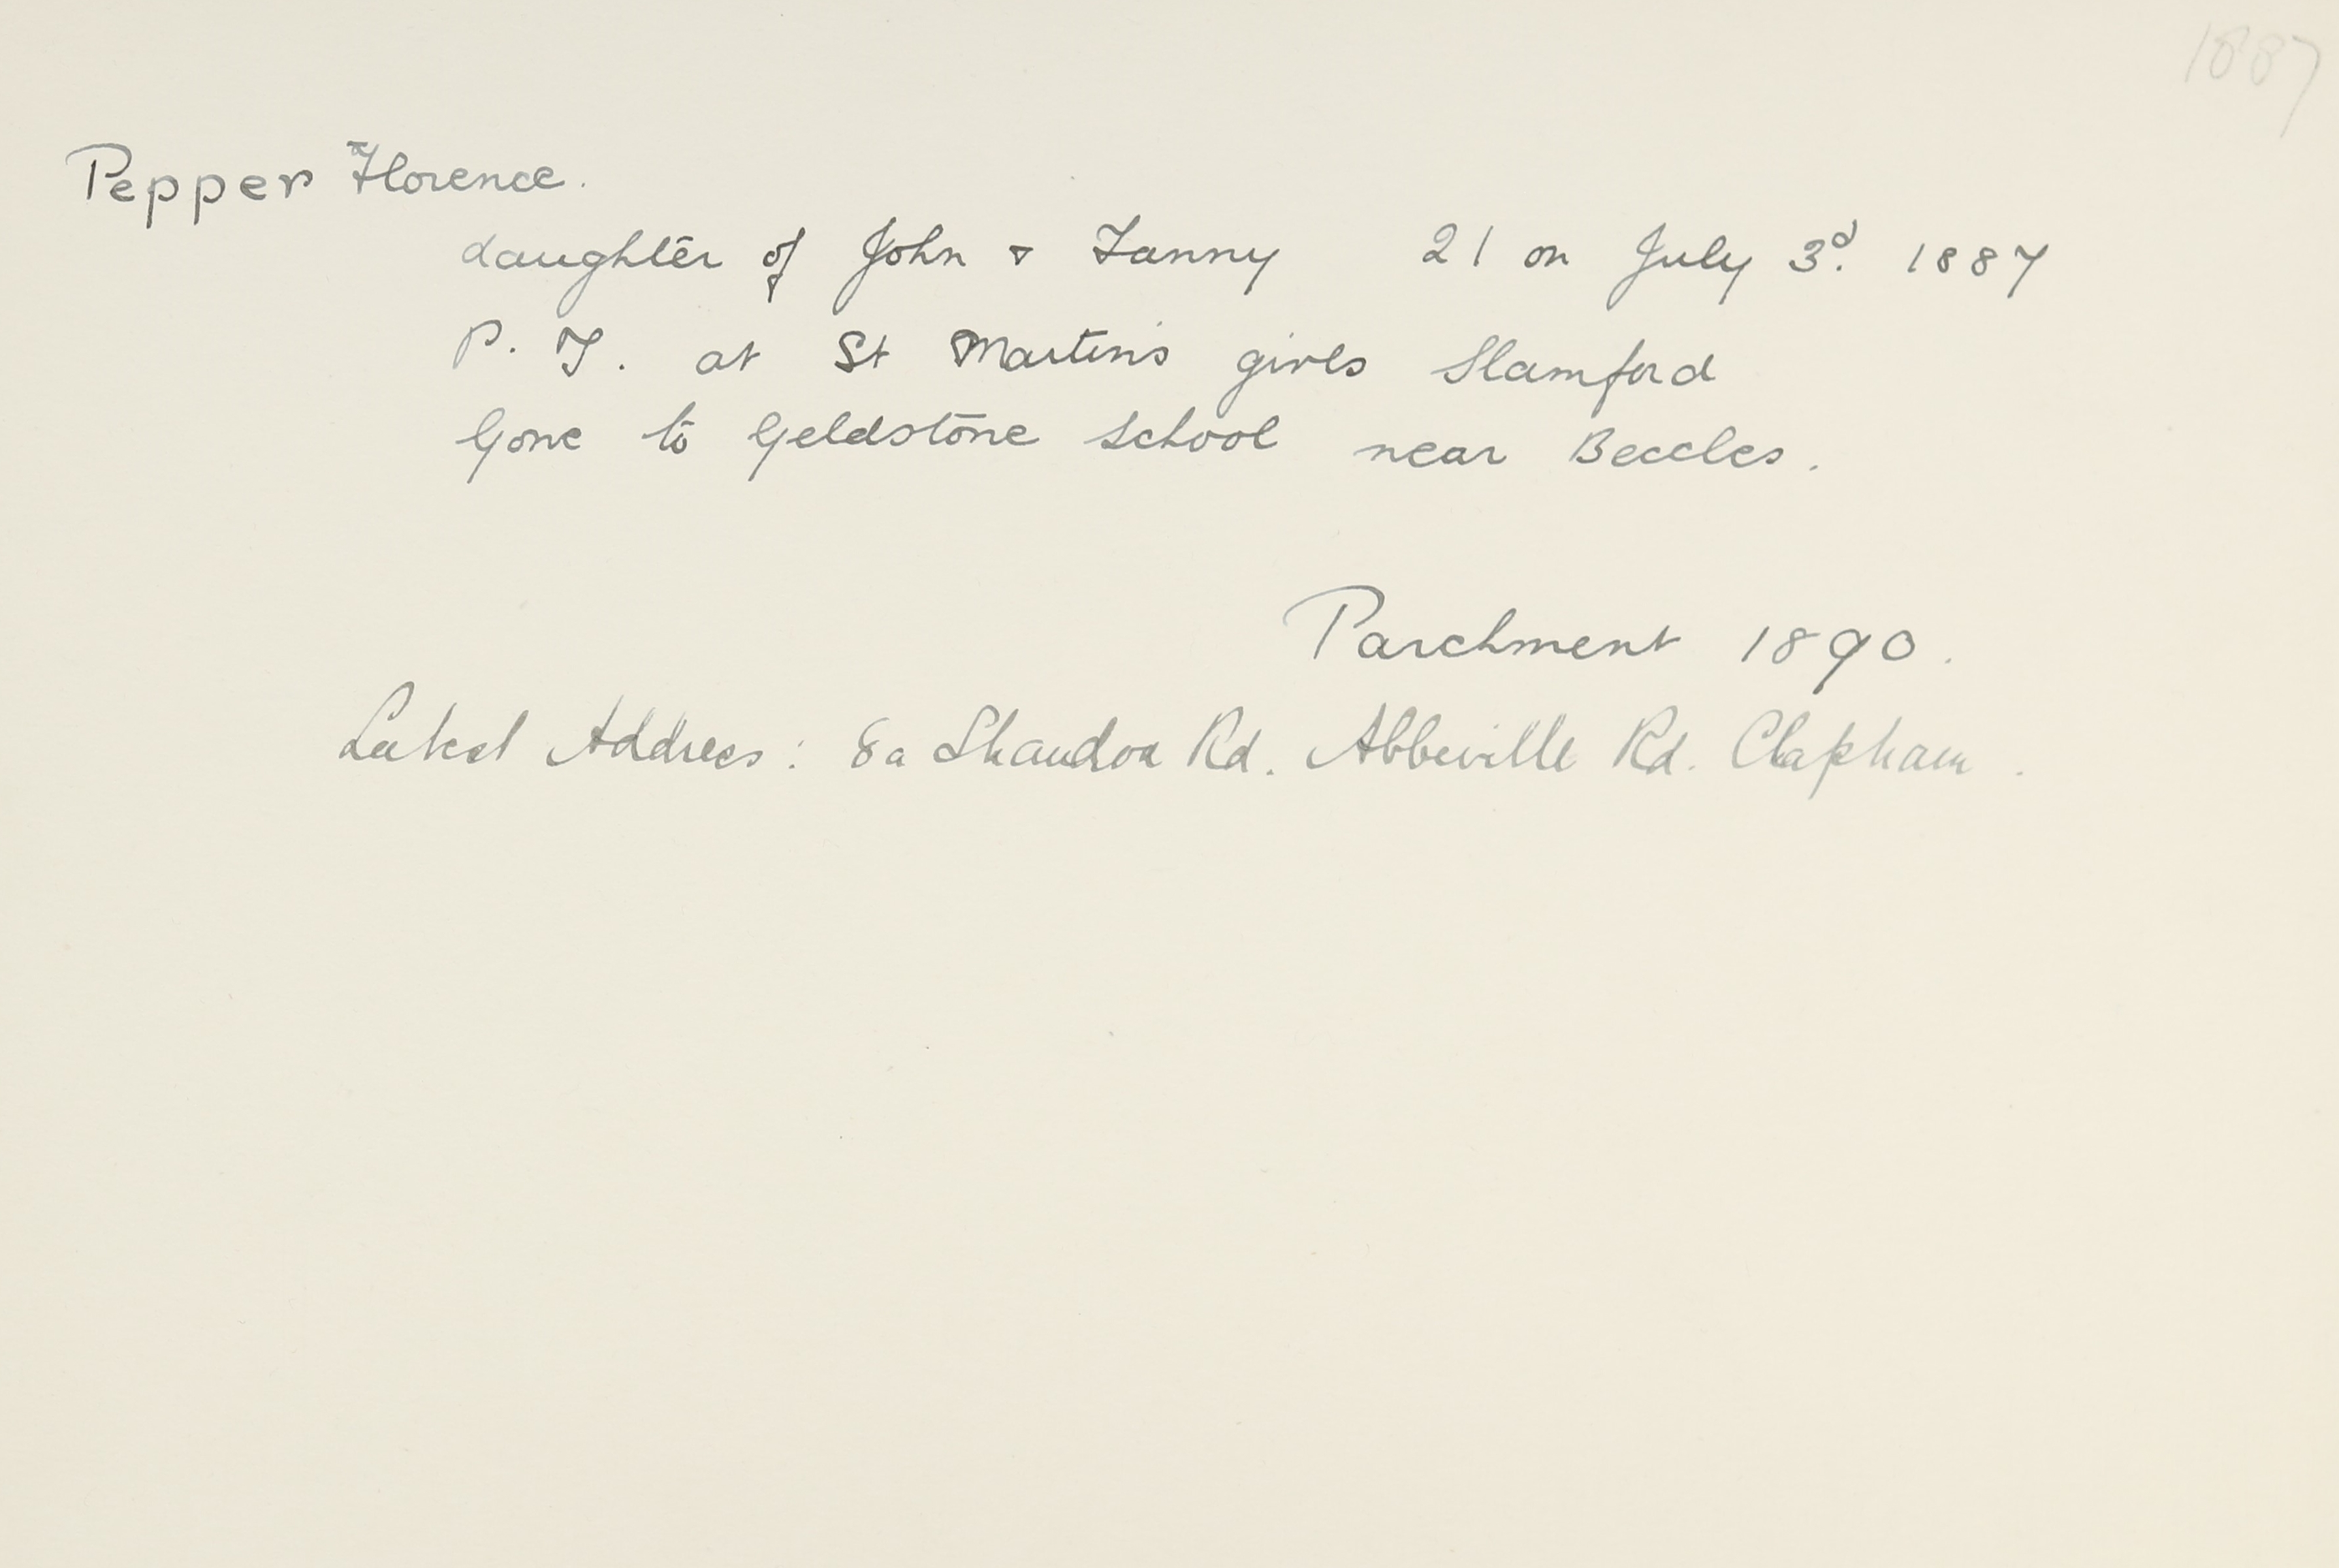 1887
Pepper Florence.
daughter of John & Fanny 21 on July 3d. 1887
P. T. at St Martin's girls Stamford
Gone to Geldstone School near Beccles.
Parchment 1890.
Latest Address: 8a Shandon Rd. Abbeville Rd. Clapham.